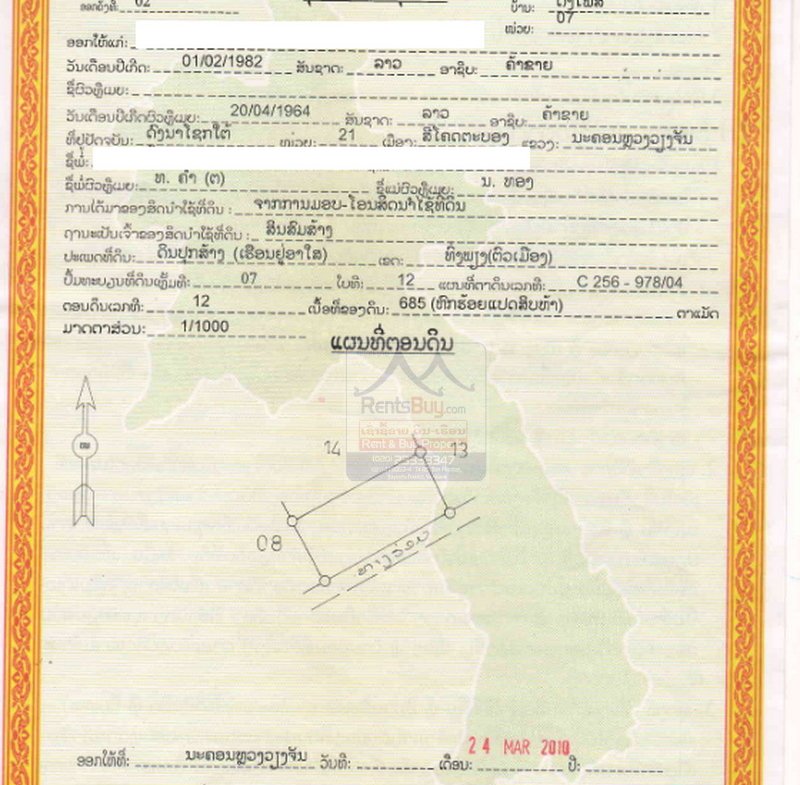 ອອກຄັ້ງທີ: 02 ບ້ານ:
07
ໜ່ວຍ:
ອອກໃຫ້ແກ່:
ວັນເດືອນປີເກີດ: 01/02/1982 ສັນຊາດ: ລາວ ອາຊີບ: ຄ້າຂາຍ
ຊື່ຜົວຫຼືເມຍ:
ວັນເດືອນປີເກີດຜົວຫຼືເມຍ: 20/04/1964 ສັນຊາດ: ລາວ ອາຊີບ: ຄ້າຂາຍ
ທີ່ຢູ່ປັດຈຸບັນ: ດົງນາໂຊກໃຕ້ ໜ່ວຍ: 21 ເມືອງ: ສີໂຄດຕະບອງ ແຂວງ: ນະຄອນຫຼວງວຽງຈັນ
ຊື່ພໍ່:
ຊື່ພໍ່ຜົວຫຼືເມຍ: ທ. ຄຳ (ຕ) ຊື່ແມ່ຜົວຫຼືເມຍ: ນ. ທອງ
ການໄດ້ມາຂອງສິດນຳໃຊ້ທີ່ດິນ : ຈາກການມອບ-ໂອນສິດນຳໃຊ້ທີ່ດິນ
ຖານະເປັນເຈົ້າຂອງສິດນຳໃຊ້ທີ່ດິນ : ສິນສົມສ້າງ
ປະເພດທີ່ດິນ: ດິນປຸກສ້າງ (ເຮືອນຢູ່ອາໃສ) ເຂດ: ທົ່ງພຽງ(ຕົວເມືອງ)
ປຶ້ມທະບຽນທີ່ດິນເຫຼັ້ມທີ: 07 ໃບທີ: 12 ແຜນທີ່ຕາດິນເລກທີ: C 256 - 978/04
ຕອນດິນເລກທີ: 12 ເນື້ອທີ່ຂອງດິນ: 685 (ຫົກຮ້ອຍແປດສິບຫ້າ) ຕາແມັດ
ມາດຕາສ່ວນ: 1/1000
ແຜນທີ່ຕອນດິນ
RentsBuy.com
ເຊົ່າຊື້ຂາຍ ດິນ - ເຮືອນ
Rent & Buy Property
14 13
08
ທາງຮ່ອມ
24 MAR 2010
ອອກໃຫ້ທີ່: ນະຄອນຫຼວງວຽງຈັນ ວັນທີ: ເດືອນ: ປີ: